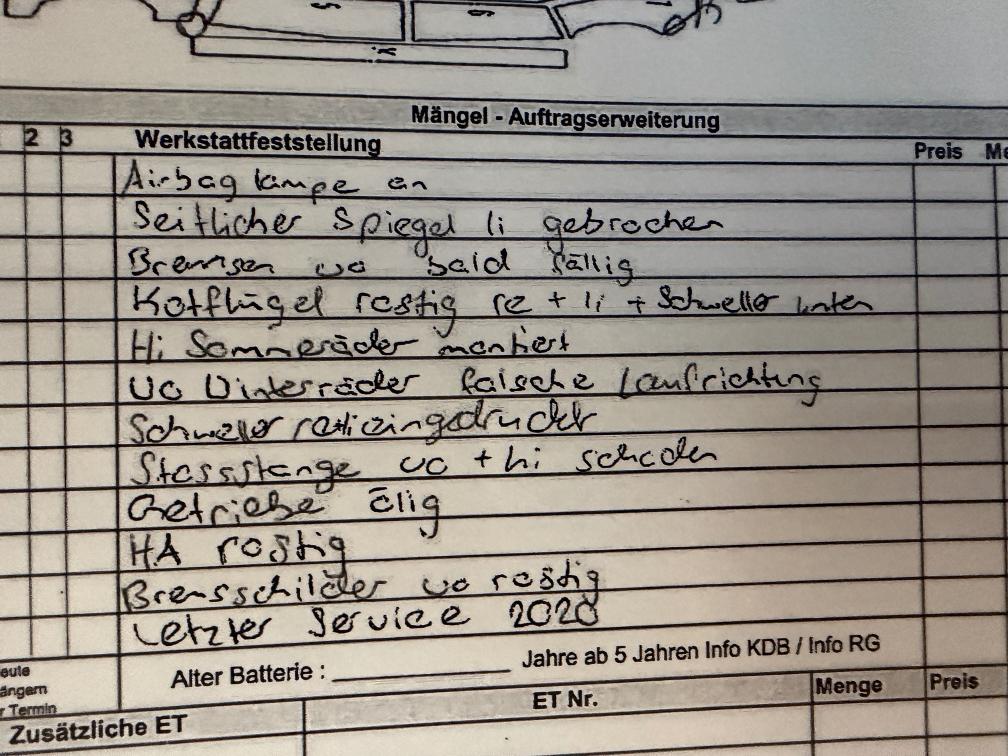 Mängel - Auftragserweiterung
2 3 Werkstattfeststellung Preis Me
Airbag lampe an
Seitlicher Spiegel li gebrochen
Bremsen vo bald fällig
Kotflügel rostig re + li + Schweller unten
Hi Sommeräder montiert
Vo Winterräder falsche Laufrichtung
Schweller re+li eingedruckt
Stossstange vo + hi schaden
Getriebe ölig
HA rostig
Bremsschilder vo rostig
Letzter Service 2020
eute
ängern
r Termin
Alter Batterie : __________ Jahre ab 5 Jahren Info KDB / Info RG
Zusätzliche ET ET Nr. Menge Preis